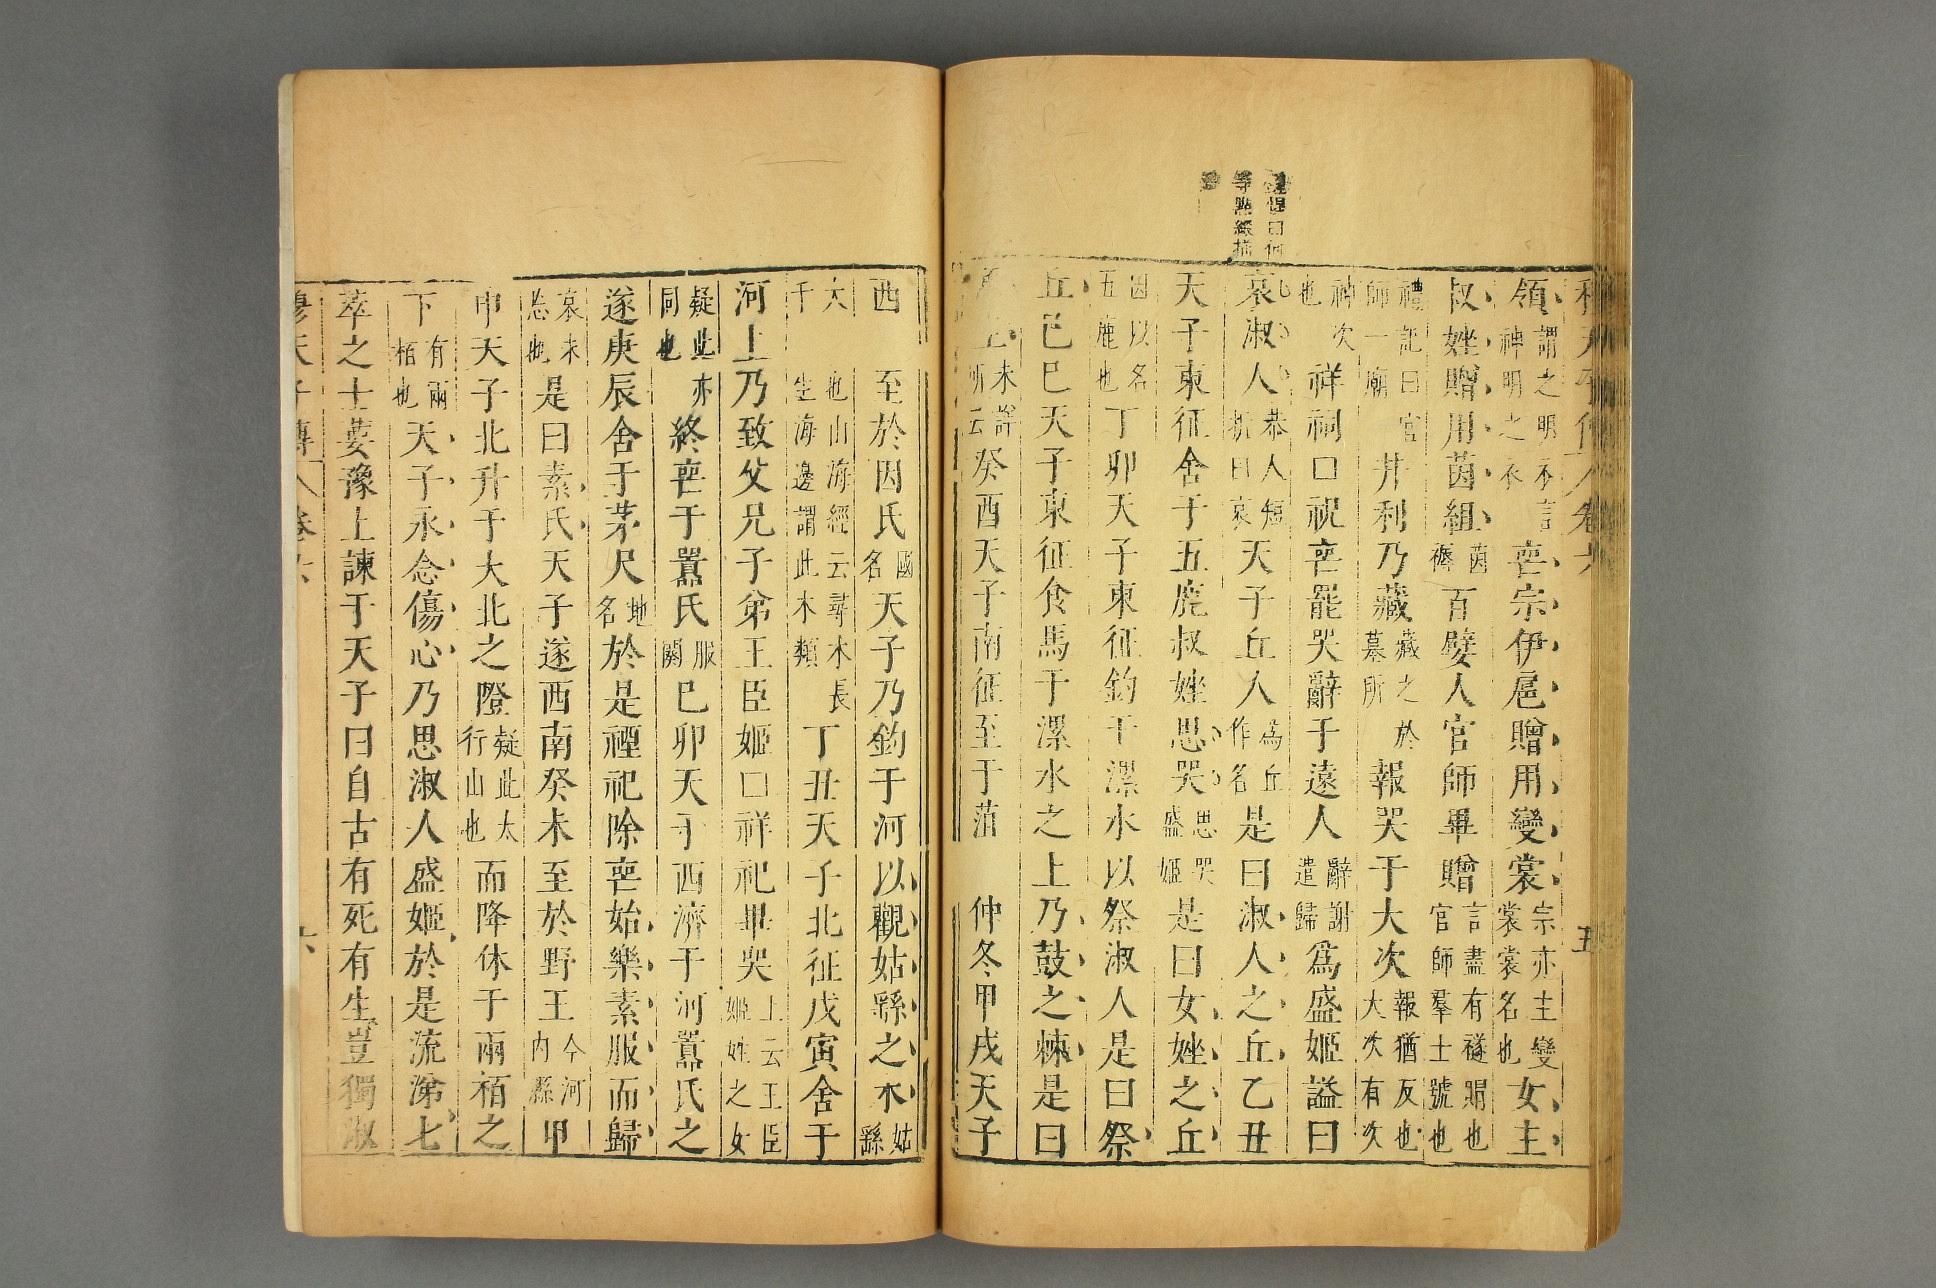 日何
等點綴
穆天子傳 卷六 五
領謂之明衣言神明之衣喪宗伊扈贈用變裳宗亦主變裳裳名也女主
叔㛗贈用茵組茵褥百嬖人官師畢贈言盡有襚賵也官師羣士號也
禮記曰官師一廟井利乃藏藏之於墓所報哭于大次報猶反也大次有次
神次也祥祠口祝喪罷哭辭于遠人辭謝遣歸爲盛姬謚曰
哀淑人恭人短折曰哀天子丘人爲丘作名是曰淑人之丘乙丑
天子東征舍于五鹿叔㛗思哭思哭盛姬是曰女㛗之丘
因以名五鹿也丁卯天子東征釣于漯水以祭淑人是曰祭
丘己巳天子東征食馬于漯水之上乃鼓之棘是曰
未詳所云癸酉天子南征至于菹 仲冬甲戌天子
西 至於因氏國名天子乃釣于河以觀姑繇之木姑繇
大 也山海經云尋木長千 生海邊謂此木類丁丑天子北征戊寅舍于
河上乃致父兄子弟王臣姬口祥祀畢哭上云王臣姬姓之女
疑此亦同也終喪于嚻氏服闋己卯天子西濟于河嚻氏之
遂庚辰舍于茅尺地名於是禋祀除喪始樂素服而歸
哀未忘也是曰素氏天子遂西南癸未至於野王今河內縣甲
申天子北升于大北之隥疑此太行山也而降休于兩栢之
下有兩栢也天子永念傷心乃思淑人盛姬於是流涕七
萃之士葽豫上諫于天子曰自古有死有生豈獨淑
穆天子傳 卷六 六